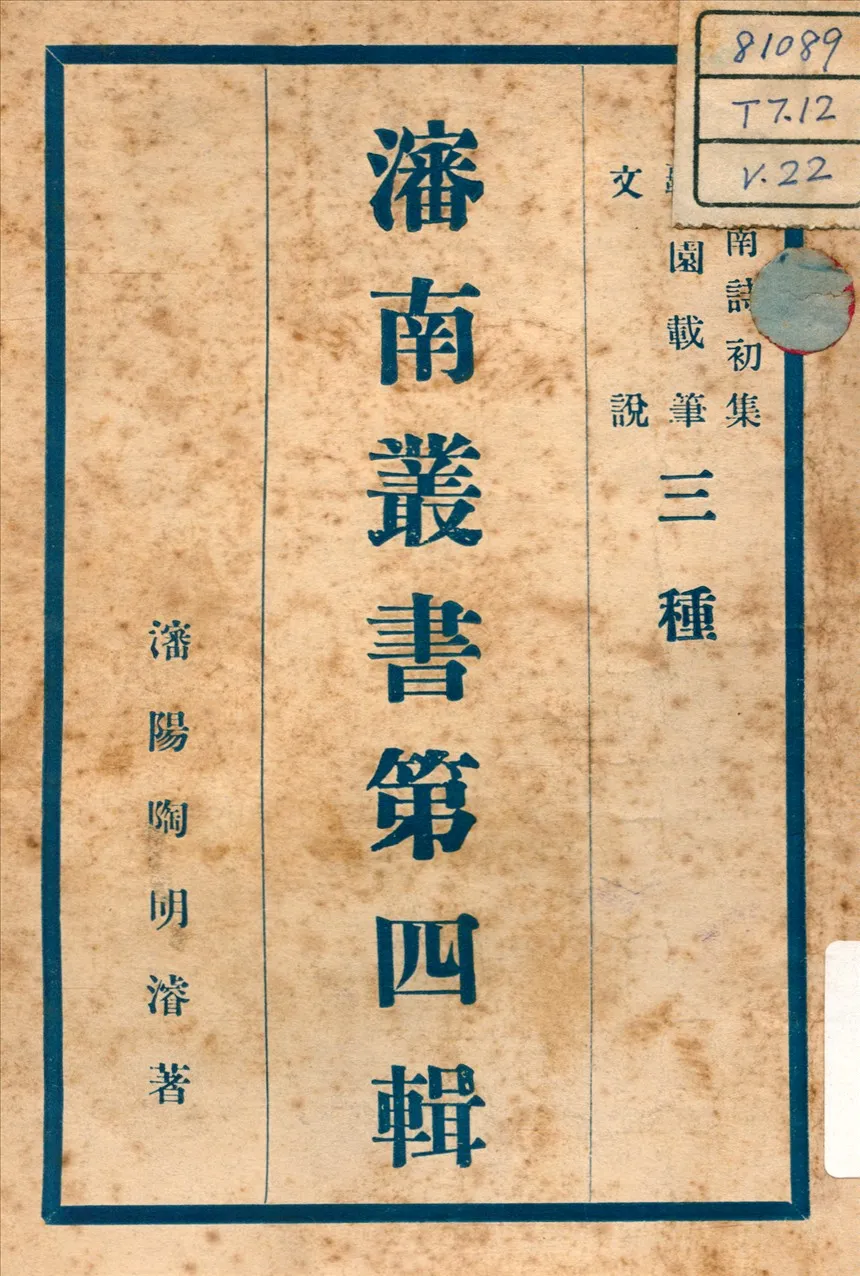 81089
T7.12
V.22
南詩初集
園載筆
文說
三種
瀋南叢書第四輯
瀋陽陶明濬著